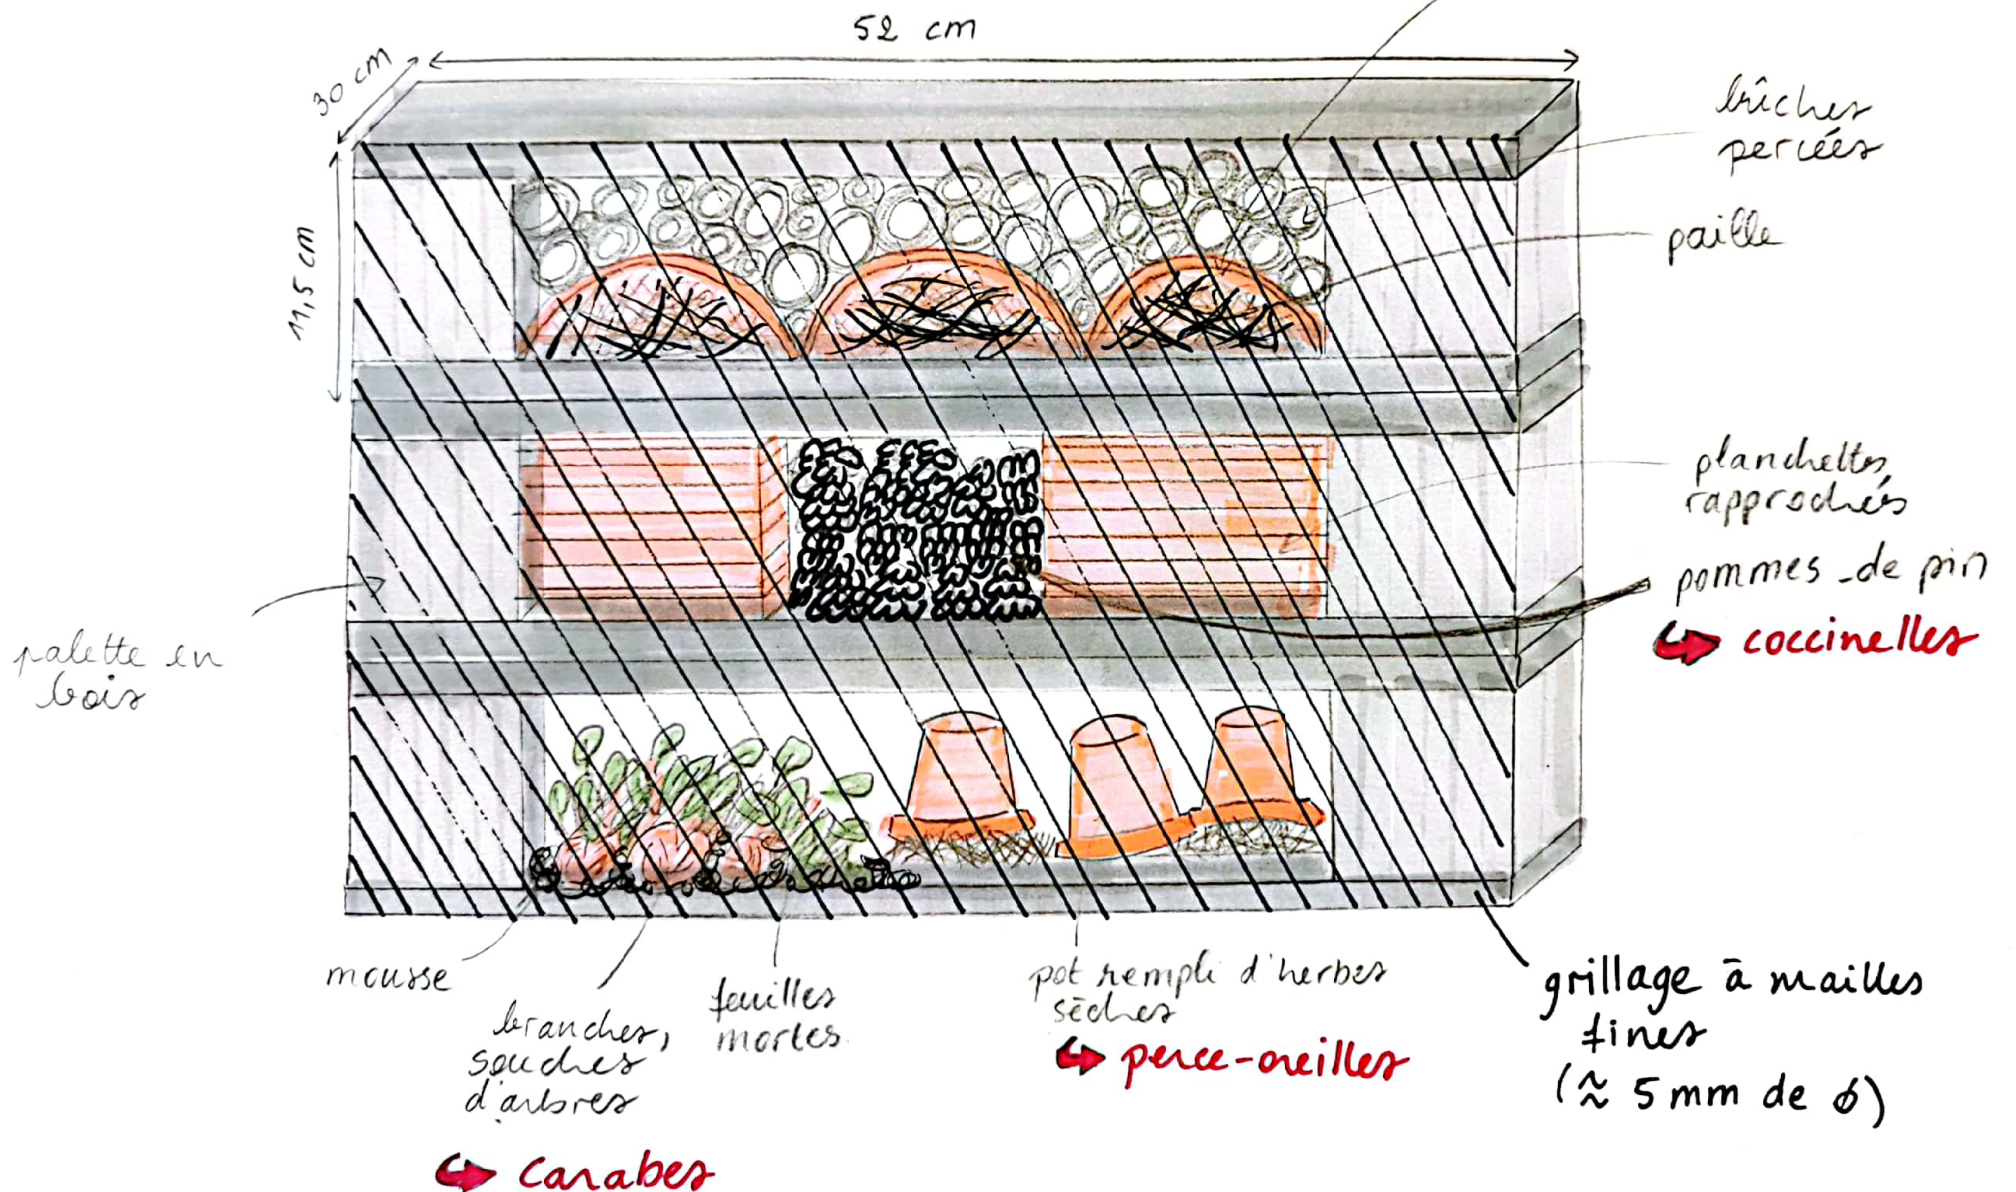 52 cm
30 cm
11,5 cm
bûches
percées
paille
planchettes
rapprochées
pommes-de pin
coccinelles
palette en
bois
mousse
branches,
souches
d'arbres
Carabes
feuilles
mortes
pot rempli d'herbes
sèches
perce-oreilles
grillage à mailles
fines
(≈ 5 mm de ϕ)